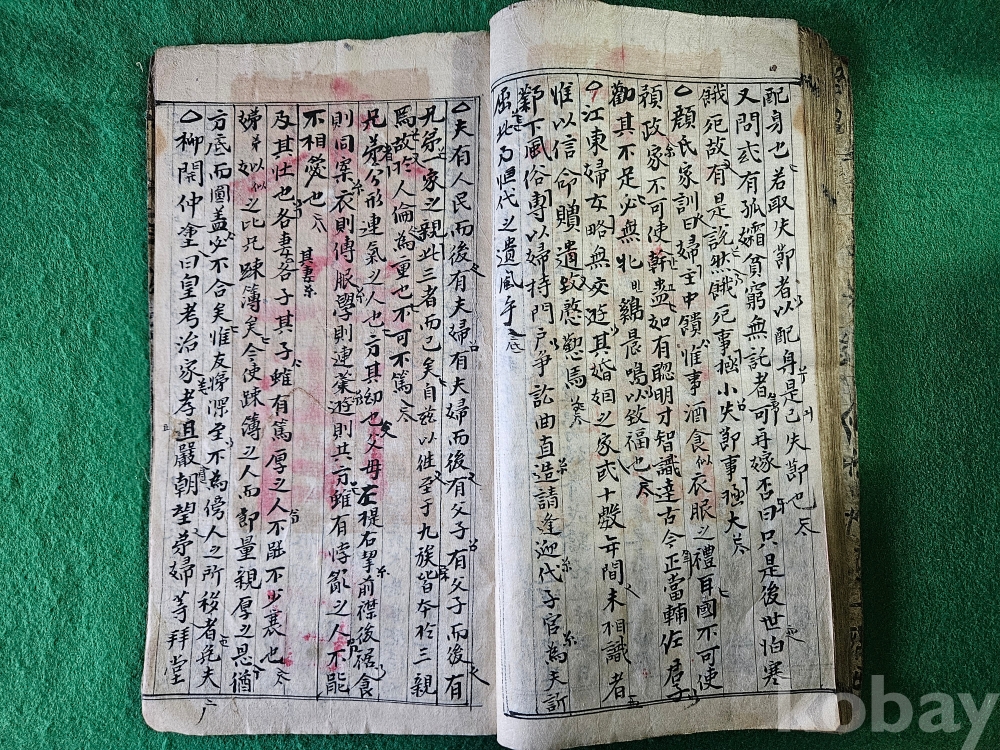 配身也若取失節者以配身是己失節也
又問或有孤孀貧窮無託者可再嫁否曰只是後世怕寒
餓死故有是說然餓死事極小失節事極大
○顔氏家訓曰婦主中饋惟事酒食衣服之禮耳國不可使
預政家不可使幹蠱如有聰明才智識達古今正當輔佐君子
勸其不足必無牝鷄晨鳴以致福也
○江東婦女略無交遊其婚姻之家或十數年間未相識者
惟以信命贈遺致慇懃焉
鄴下風俗専以婦持門户争訟曲直造請逢迎代子官為夫訴
屈此乃恒代之遺風乎
○夫有人民而後有夫婦有夫婦而後有父子有父子而後有
兄弟一家之親此三者而已矣自玆以徃至于九族皆夲於三親
焉故於人倫為重也不可不篤
兄弟者分形連氣之人也方其幼也父母左提右挈前襟後裾食
則同案衣則傳服學則連業遊則共方雖有悖亂之人不能
不相愛也
其妻
及其壯也各妻各子其子雖有篤厚之人不能不少衰也
娣姒之比兄踈簿矣今使踈簿之人而節量親厚之恩猶
方底而圓盖必不合矣惟友悌深至不為傍人之所移者免夫
○柳開仲塗曰皇考治家孝且嚴朝望弟婦等拜堂
kobay